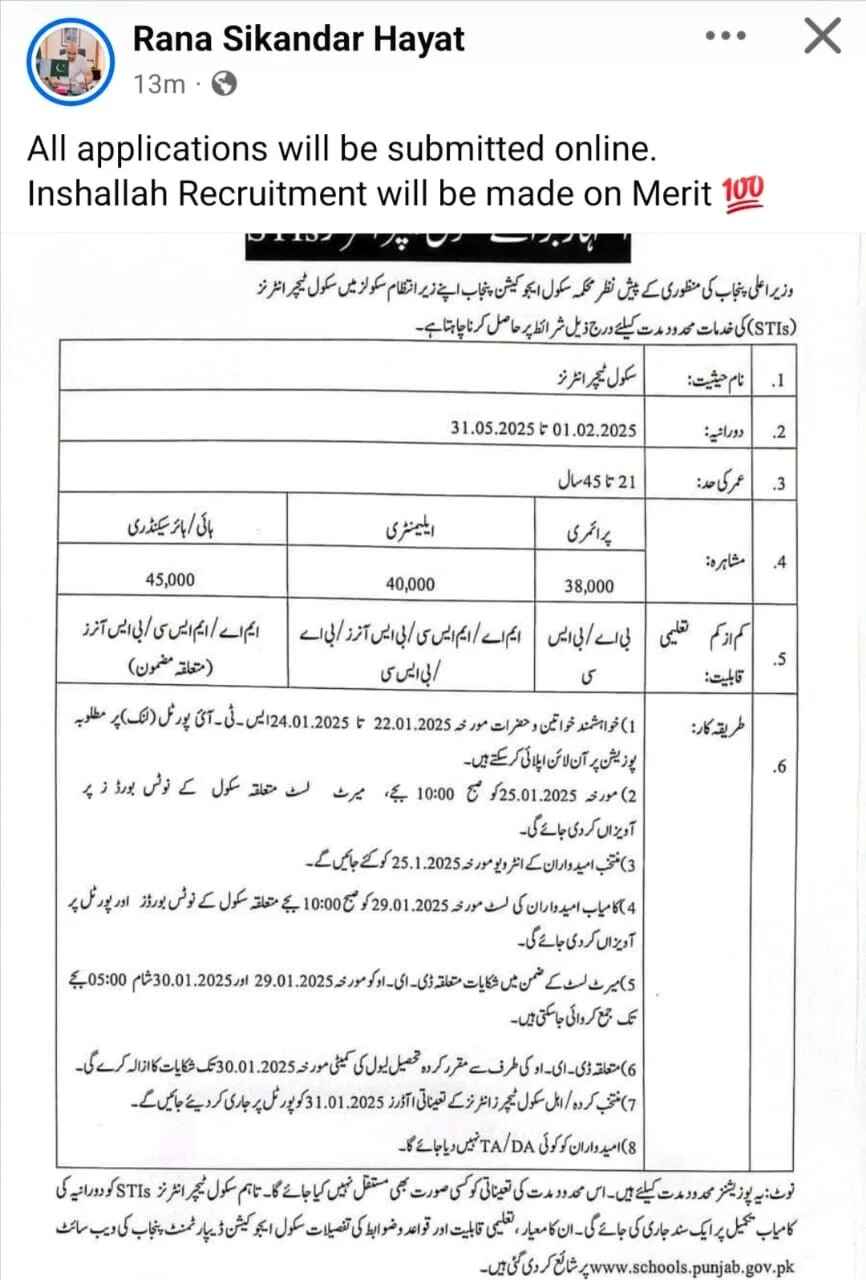 Rana Sikandar Hayat
13m
All applications will be submitted online.
Inshallah Recruitment will be made on Merit 💯
وزیر اعلیٰ پنجاب کی منظوری کے پیش نظر محکمہ سکول ایجوکیشن پنجاب اپنے زیر انتظام سکولز میں سکول ٹیچر انٹرنز
(STIs) کی خدمات محدود مدت کیلئے درج ذیل شرائط پر حاصل کرنا چاہتا ہے۔
1. نام حیثیت: سکول ٹیچر انٹرنز
2. دورانیہ: 01.02.2025 تا 31.05.2025
3. عمر کی حد: 21 تا 45 سال
پرائمری ایلیمنٹری ہائی/ہائر سیکنڈری
4. مشاہرہ:
38,000 40,000 45,000
5. کم از کم تعلیمی بی اے/بی ایس ایم اے/ایم ایس سی/بی ایس آنرز/بی اے ایم اے/ایم ایس سی/بی ایس آنرز
قابلیت: سی /بی ایس سی (متعلقہ مضمون)
6. طریقہ کار: 1) خواہشمند خواتین و حضرات مورخہ 22.01.2025 تا 24.01.2025 ایس-ٹی-آئی پورٹل (لنک) پر مطلوبہ
پوزیشن پر آن لائن اپلائی کر سکتے ہیں۔
2) مورخہ 25.01.2025 کو صبح 10:00 بجے، میرٹ لسٹ متعلقہ سکول کے نوٹس بورڈز پر
آویزاں کر دی جائے گی۔
3) منتخب امیدواران کے انٹرویو مورخہ 25.1.2025 کو کئے جائیں گے۔
4) کامیاب امیدواران کی لسٹ مورخہ 29.01.2025 کو صبح 10:00 بجے متعلقہ سکول کے نوٹس بورڈز اور پورٹل پر
آویزاں کر دی جائے گی۔
5) میرٹ لسٹ کے ضمن میں شکایات متعلقہ ڈی-ای-او کو مورخہ 29.01.2025 اور 30.01.2025 شام 05:00 بجے
تک جمع کروائی جا سکتی ہیں۔
6) متعلقہ ڈی-ای-او کی طرف سے مقرر کردہ تحصیل لیول کی کمیٹی مورخہ 30.01.2025 تک شکایات کا ازالہ کرے گی۔
7) منتخب کردہ/اہل سکول ٹیچرز انٹرنز کے تعیناتی آڈرز 31.01.2025 کو پورٹل پر جاری کر دیئے جائیں گے۔
8) امیدواران کو کوئی TA/DA نہیں دیا جائے گا۔
نوٹ: یہ پوزیشنز محدود مدت کیلئے ہیں۔ اس محدود مدت کی تعیناتی کو کسی صورت بھی مستقل نہیں کیا جائے گا۔ تاہم سکول ٹیچر انٹرنز STIs کو دورانیہ کی
کامیاب تکمیل پر ایک سند جاری کی جائے گی۔ ان کا معیار، تعلیمی قابلیت اور قواعد و ضوابط کی تفصیلات سکول ایجوکیشن ڈیپارٹمنٹ پنجاب کی ویب سائٹ
www.schools.punjab.gov.pk پر شائع کر دی گئی ہیں۔